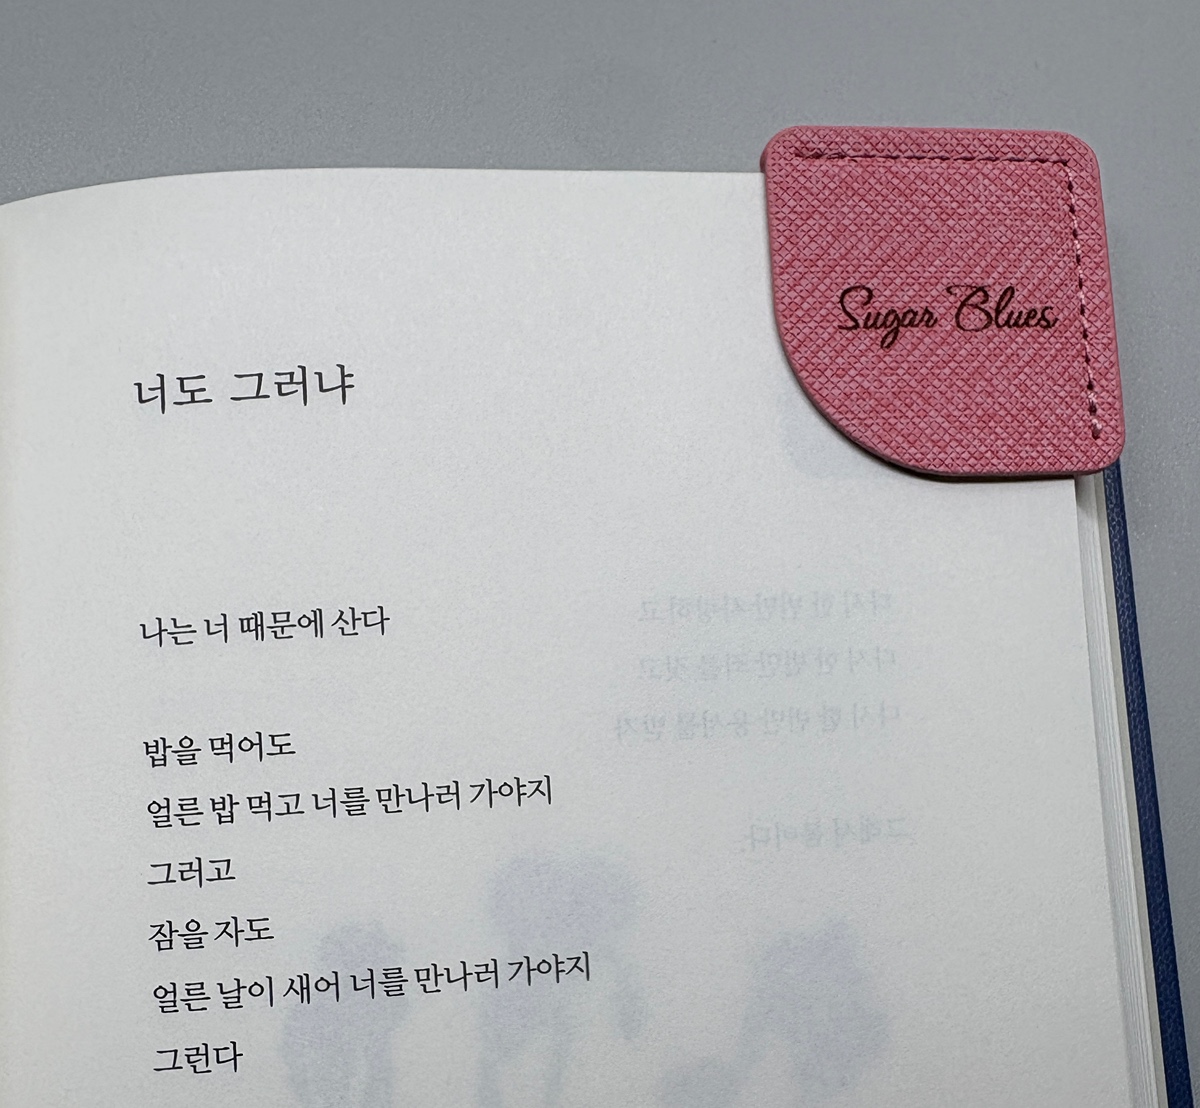 Sugar Blues
너도 그러냐
나는 너 때문에 산다
밥을 먹어도
얼른 밥 먹고 너를 만나러 가야지
그러고
잠을 자도
얼른 날이 새어 너를 만나러 가야지
그런다